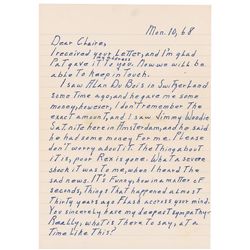 Mon. 10, 68
Dear Claire,
I received your Letter, and I'm glad
Pat gave my address it to you. Now we will be
able to keep in touch.
I saw Alan Du Bois in Switzerland
some time ago, and he gave me some
money, however, I don't remember the
exact amount, and I saw Jimmy Woode
Sat nite here in Amsterdam, and he said
he had some money for me. Please
don't worry about it. The thing about
it is, poor Rex is gone. What a severe
shock it was to me, when I heard the
sad news. It's funny, how in a matter of
seconds, things that happened almost
thirty years ago flash across your mind.
You sincerely have my deepest sympathy.
Really, what is there to say, at a
time like this!